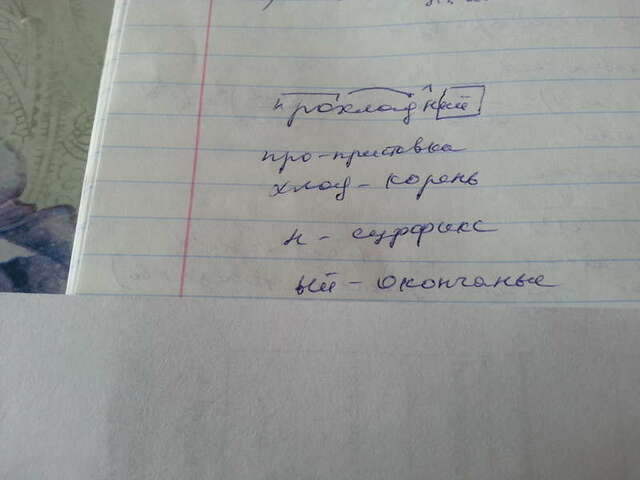 прохладный
про-приставка
хлад - корень
н - суффикс
ый - окончание